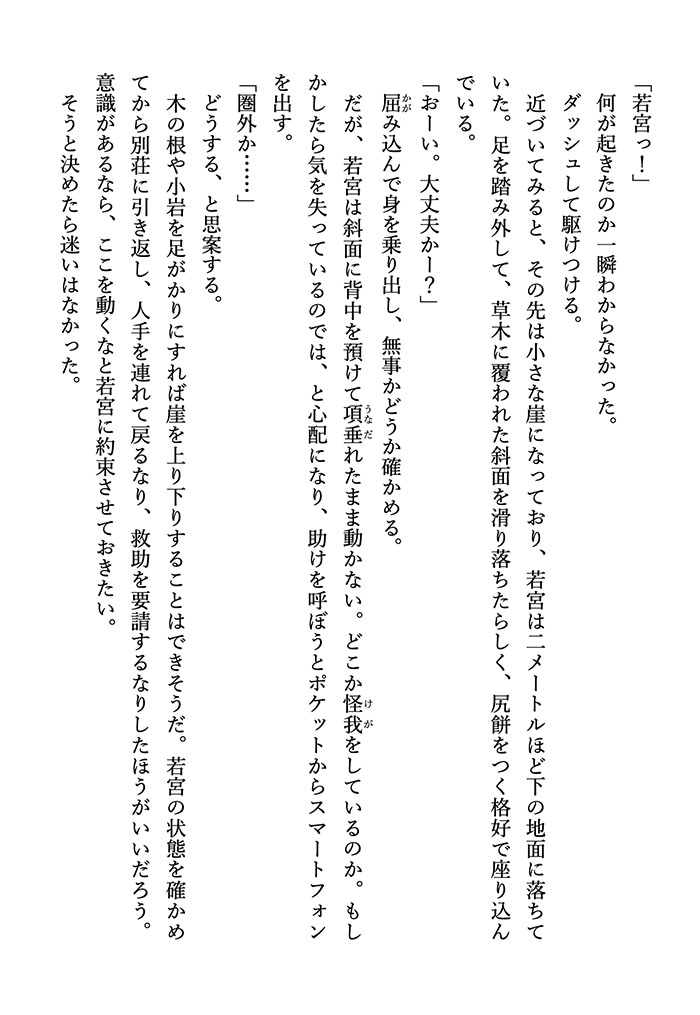 「若宮っ！」
何が起きたのか一瞬わからなかった。
ダッシュして駆けつける。
近づいてみると、その先は小さな崖になっており、若宮は二メートルほど下の地面に落ちて
いた。足を踏み外して、草木に覆われた斜面を滑り落ちたらしく、尻餅をつく格好で座り込ん
でいる。
「おーい。大丈夫かー？」
屈み込んで身を乗り出し、無事かどうか確かめる。
だが、若宮は斜面に背中を預けて項垂れたまま動かない。どこか怪我をしているのか。もし
かしたら気を失っているのでは、と心配になり、助けを呼ぼうとポケットからスマートフォン
を出す。
「圏外か……」
どうする、と思案する。
木の根や小岩を足がかりにすれば崖を上り下りすることはできそうだ。若宮の状態を確かめ
てから別荘に引き返し、人手を連れて戻るなり、救助を要請するなりしたほうがいいだろう。
意識があるなら、ここを動くなと若宮に約束させておきたい。
そうと決めたら迷いはなかった。